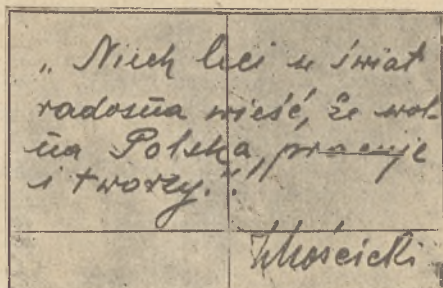 „Niech leci w świat
radosna wieść, że wol-
na Polska, pracuje
i tworzy.”
IMościcki